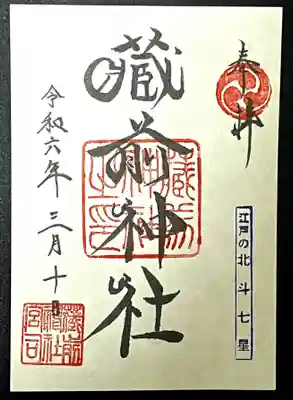 奉拝
江戸の北斗七星
蔵前神社
令和六年三月十日